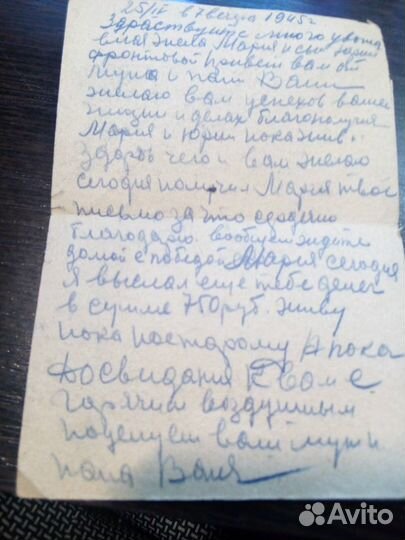 25/IV в 7 вечера 1945 г
Здраствуйте много уважа
емая жена Мария и сын Юрий
фронтовой привет вам от
мужа и папи Вани
желаю вам успехов вашей
жизни и делах благополучия
Мария и Юрий пока жив и
здоров чего и вам желаю
сегодня получил Мария твое
письмо за что сердечно
благодарю. вообщем ждите
домой с победой Мария сегодня
я выслал еще тебе денег
в сумме 750 руб. живу
пока постарому А пока
Досвидания К вам с
горячим воздушным
поцелуем ваш муж и
папа Ваня
Avito